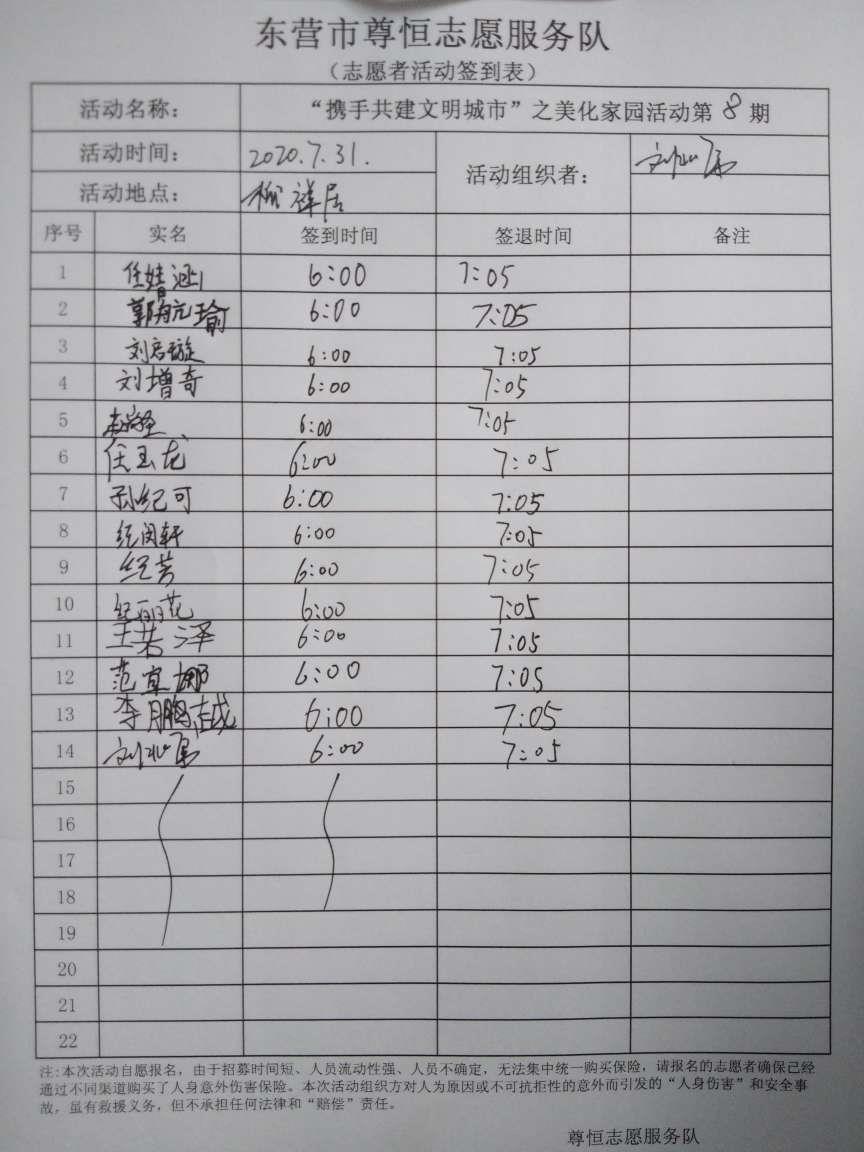 东营市尊恒志愿服务队
（志愿者活动签到表）
活动名称： “携手共建文明城市”之美化家园活动第 8 期
活动时间： 2020.7.31. 活动组织者：
活动地点： 祥居
序号 实名 签到时间 签退时间 备注
1 任婧涵 6:00 7:05
2 6:00 7:05
3 刘启璇 6:00 7:05
4 刘增奇 6:00 7:05
5 6:00 7:05
6 任玉龙 6:00 7:05
7 孙纪可 6:00 7:05
8 纪闵轩 6:00 7:05
9 纪芳 6:00 7:05
10 纪丽花 6:00 7:05
11 王若泽 6:00 7:05
12 范宜娜 6:00 7:05
13 李鹏越 6:00 7:05
14 6:00 7:05
15
16
17
18
19
20
21
22
注：本次活动自愿报名，由于招募时间短、人员流动性强、人员不确定，无法集中统一购买保险，请报名的志愿者确保已经
通过不同渠道购买了人身意外伤害保险。本次活动组织方对人为原因或不可抗拒性的意外而引发的“人身伤害”和安全事
故，虽有救援义务，但不承担任何法律和“赔偿”责任。
尊恒志愿服务队